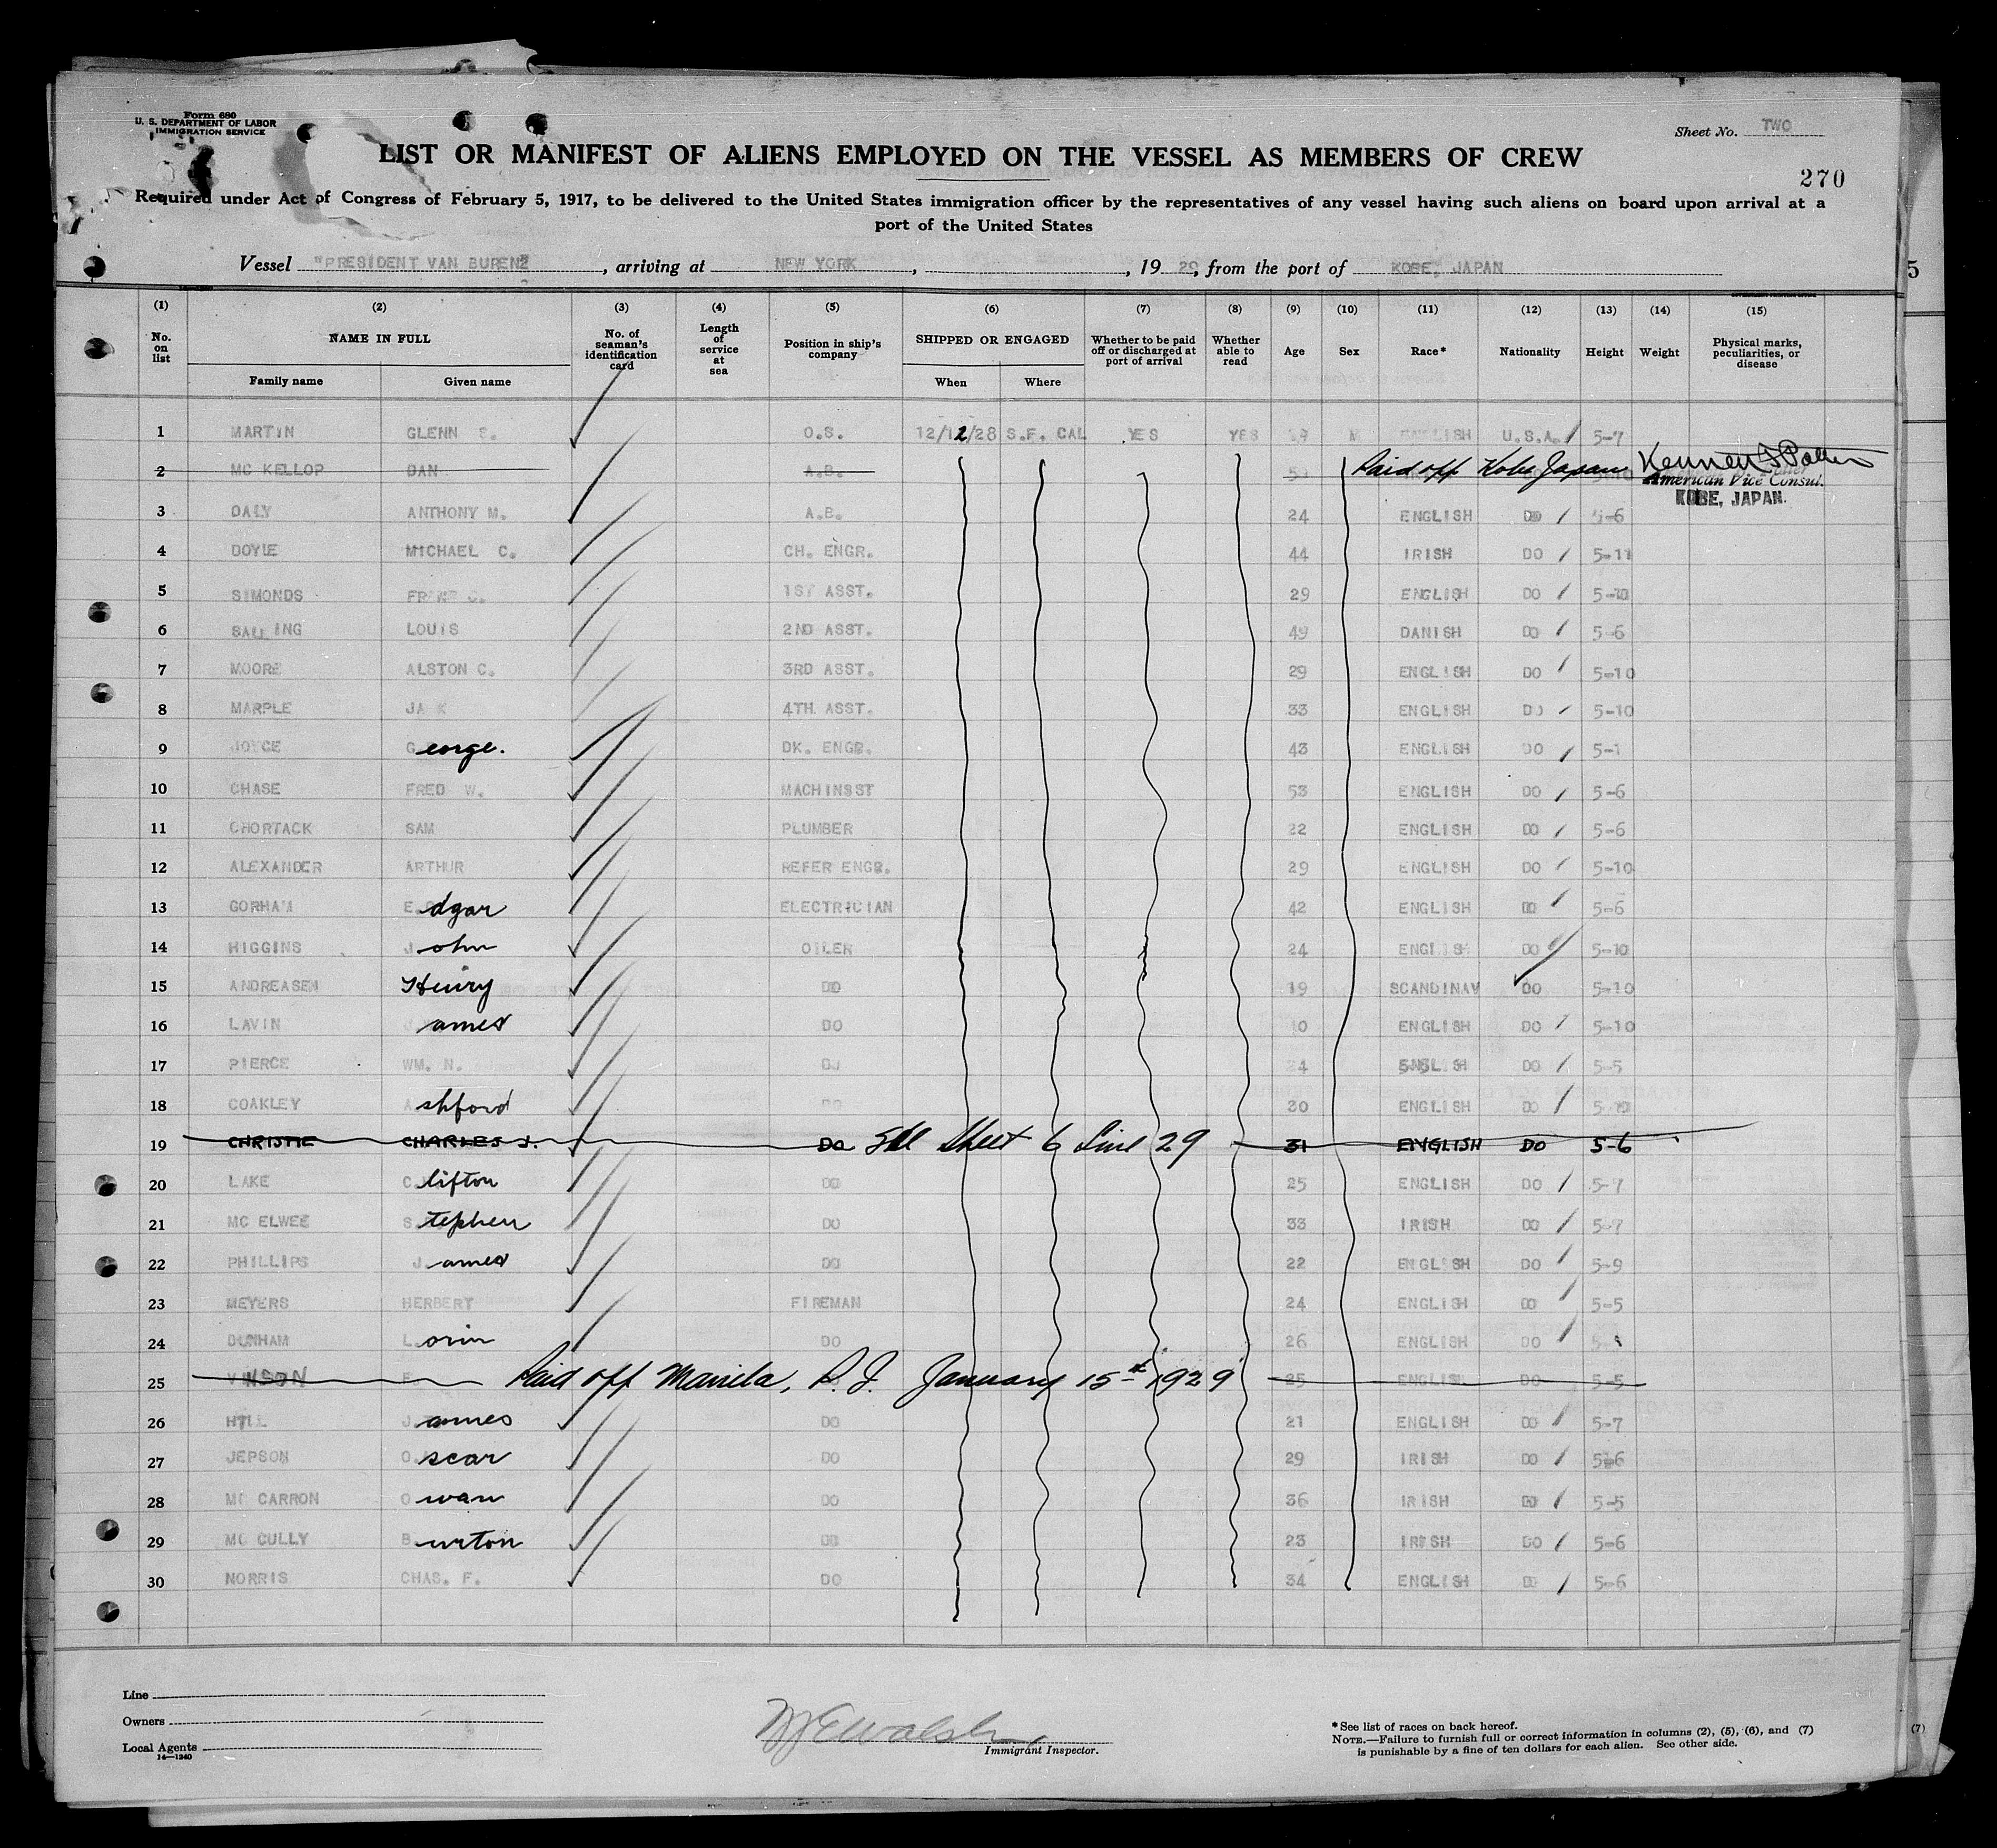 Form 680
U. S. DEPARTMENT OF LABOR
IMMIGRATION SERVICE
Sheet No. TWO
LIST OR MANIFEST OF ALIENS EMPLOYED ON THE VESSEL AS MEMBERS OF CREW
270
Required under Act of Congress of February 5, 1917, to be delivered to the United States immigration officer by the representatives of any vessel having such aliens on board upon arrival at a
port of the United States
Vessel "PRESIDENT VAN BUREN", arriving at NEW YORK, , 19 29, from the port of KOBE, JAPAN
5
(1) (2) (3) (4) (5) (6) (7) (8) (9) (10) (11) (12) (13) (14) (15)
No. on list NAME IN FULL No. of seaman's identification card Length of service at sea Position in ship's company SHIPPED OR ENGAGED Whether to be paid off or discharged at port of arrival Whether able to read Age Sex Race* Nationality Height Weight Physical marks, peculiarities, or disease
Family name Given name When Where
1 MARTIN GLENN O.S. 12/12/28 S.F. CAL YES YES M ENGLISH U.S.A. 5-7
2 MC KELLOP DAN A.B. Paid off Kobe Japan
American Vice Consul.
KOBE, JAPAN.
3 DALY ANTHONY M. A.B. 24 ENGLISH DO 5-6
4 DOYLE MICHAEL C. CH. ENGR. 44 IRISH DO 5-11
5 SIMONDS 1ST ASST. 29 ENGLISH DO 5-10
6 SALLING LOUIS 2ND ASST. 49 DANISH DO 5-6
7 MOORE ALSTON C. 3RD ASST. 29 ENGLISH DO 5-10
8 MARPLE JA K 4TH ASST. 33 ENGLISH DO 5-10
9 JOYCE George. DK. ENGR. 43 ENGLISH DO 5-1
10 CHASE FRED W. MACHINSST 53 ENGLISH DO 5-6
11 CHORTACK SAM PLUMBER 22 ENGLISH DO 5-6
12 ALEXANDER ARTHUR REFER ENGR. 29 ENGLISH DO 5-10
13 GORHAM Edgar ELECTRICIAN 42 ENGLISH DO 5-6
14 HIGGINS John OILER 24 ENGLISH DO 5-10
15 ANDREASEN Henry DO 19 SCANDINAV DO 5-10
16 LAVIN James DO ENGLISH DO 5-10
17 PIERCE WM. N. DO ENGLISH DO 5-5
18 COAKLEY Ashford DO 30 ENGLISH DO 5-10
19 CHRISTIE CHARLES J. DO See Sheet 6 Line 29 31 ENGLISH DO 5-6
20 LAKE Clifton DO 25 ENGLISH DO 5-7
21 MC ELWEE Stephen DO 33 IRISH DO 5-7
22 PHILLIPS James DO 22 ENGLISH DO 5-9
23 MEYERS HERBERT FIREMAN 24 ENGLISH DO 5-5
24 DUNHAM Lorin DO 26 ENGLISH DO
25 VINSON Paid off Manila, P.I. January 15th 1929 25 ENGLISH DO 5-5
26 HILL James DO 21 ENGLISH DO 5-7
27 JEPSON Oscar DO 29 IRISH DO 5-6
28 MC CARRON Owan DO 36 IRISH DO 5-5
29 MC CULLY Burton DO 23 IRISH DO 5-6
30 NORRIS CHAS. F. DO 34 ENGLISH DO 5-6
Line
Owners
Local Agents
14—1240
Walsh
Immigrant Inspector.
*See list of races on back hereof.
NOTE.—Failure to furnish full or correct information in columns (2), (5), (6), and (7)
is punishable by a fine of ten dollars for each alien. See other side.
(7)